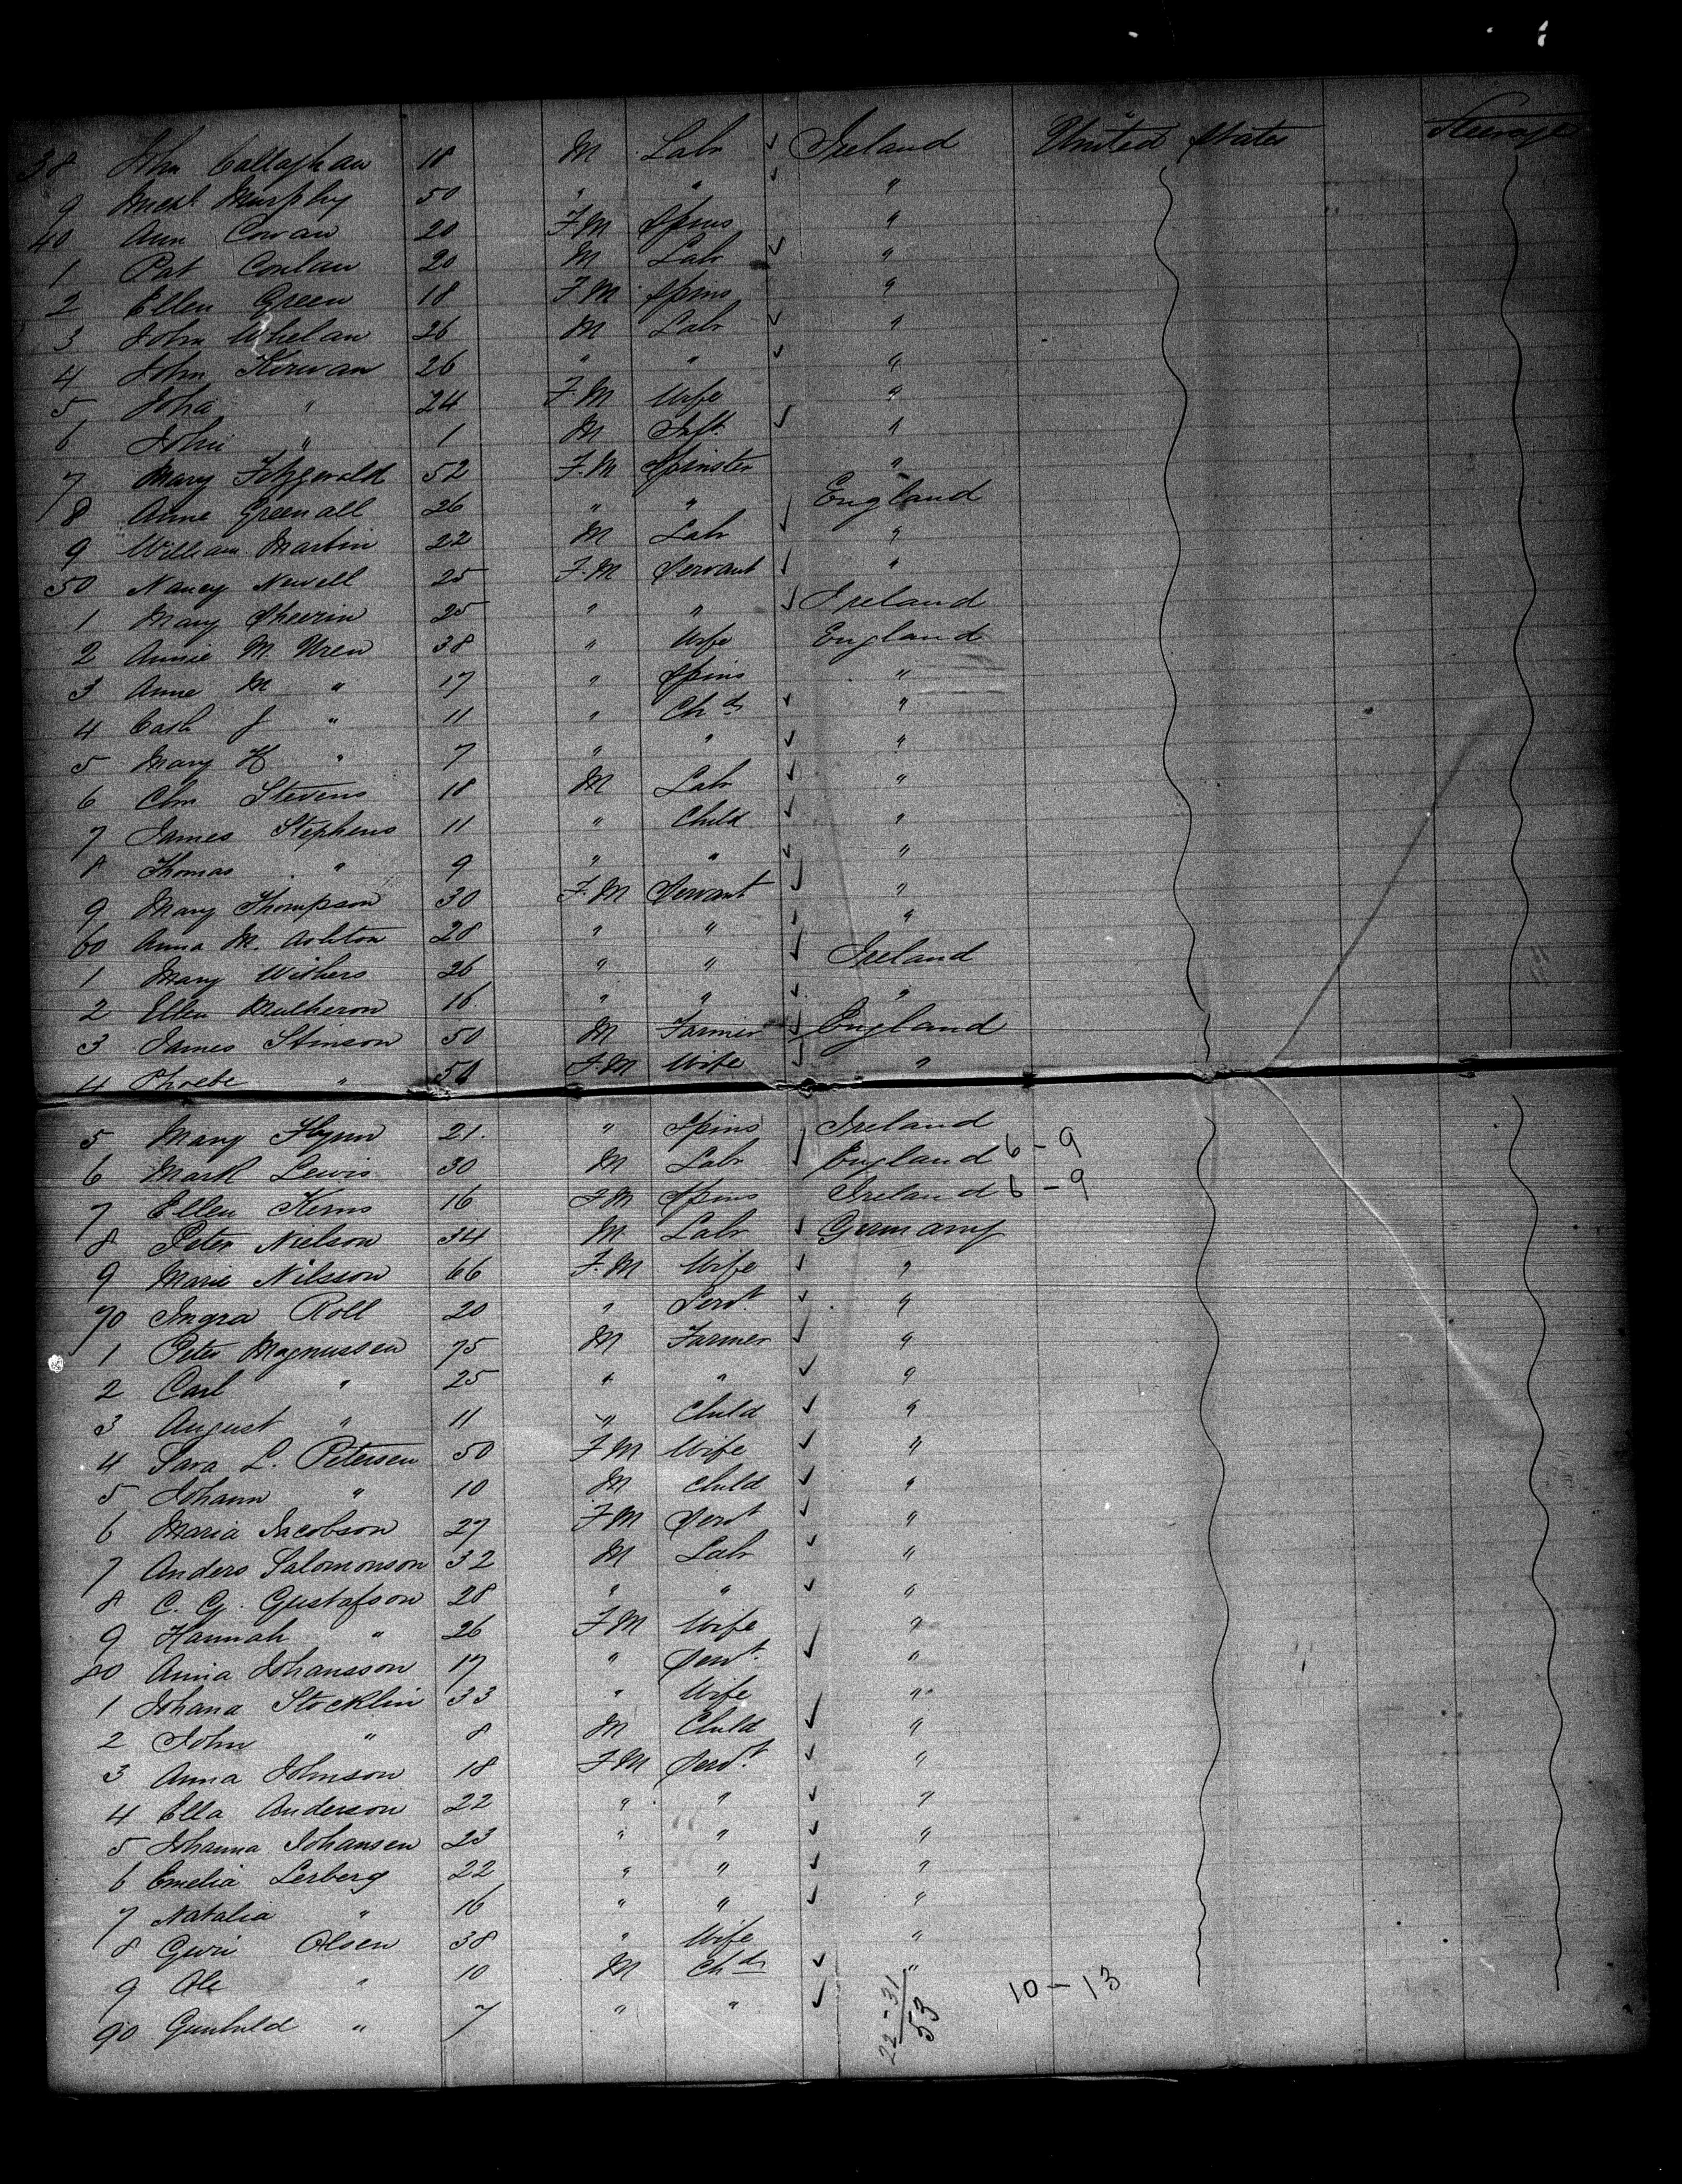 38 John Callaghan 18 M Labr ✓ Ireland United States Steerage
9 Michl Murphy 50 " " ✓ "
40 Ann Cowan 20 F.M Spins "
1 Pat Conlan 20 M Labr ✓ "
2 Ellen Green 18 F.M Spins "
3 John Whelan 26 M Labr ✓ "
4 John Kirwan 26 " " ✓ "
5 Joha " 24 F.M Wife "
6 John " 1 M Inft ✓ "
7 Mary Fitzgerald 52 F.M Spinster "
8 Anne Greenall 26 " " ✓ England
9 William Martin 22 M Labr ✓ "
50 Nancy Newell 25 F.M Servant ✓ "
1 Mary Sheerin 25 " " ✓ Ireland
2 Annie M. Uren 38 " Wife England
3 Anne M " 17 " Spins "
4 Cath J " 11 " Chd ✓ "
5 Mary H " 7 " " ✓ "
6 Chs Stevens 18 M Labr ✓ "
7 James Stephens 11 " Child ✓ "
8 Thomas " 9 " " ✓ "
9 Mary Thompson 30 F.M Servant ✓ "
60 Anna M. Ashton 28 " " "
1 Mary Withers 26 " " ✓ Ireland
2 Ellen Mulheron 16 " " ✓ "
3 James Stinson 50 M Farmer ✓ England
4 Phoebe " 50 F.M Wife ✓ "
5 Mary Flynn 21. " Spins Ireland
6 Mark Lewis 30 M Labr ✓ England 6-9
7 Ellen Kerns 16 F.M Spins Ireland 6-9
8 Peter Nielson 34 M Labr ✓ Germany
9 Marie Nilsson 66 F.M Wife ✓ "
70 Ingra Roll 20 " Servt. ✓ "
1 Peter Magnussen 75 M Farmer ✓ "
2 Carl " 25 " " ✓ "
3 August " 11 " Child ✓ "
4 Sara L. Petersen 50 F.M Wife ✓ "
5 Johann " 10 M Child ✓ "
6 Maria Jacobson 27 F.M Servt ✓ "
7 Anders Salomonson 32 M Labr ✓ "
8 C. G. Gustafson 28 " " ✓ "
9 Hannah " 26 F.M Wife "
80 Anna Johansson 17 " Servt. ✓ "
1 Johana Stocklin 33 " Wife "
2 John " 8 M Child ✓ "
3 Anna Johnson 18 F.M Servt. ✓ "
4 Ella Anderson 22 " " ✓ "
5 Johanna Johansen 23 " " ✓ "
6 Emelia Lerberg 22 " " ✓ "
7 Natalia " 16 " " ✓ "
8 Olsen 38 " Wife "
9 Ole " 10 M Chd ✓ "
90 Gunhild " 7 " " ✓
10-13
22-31
53